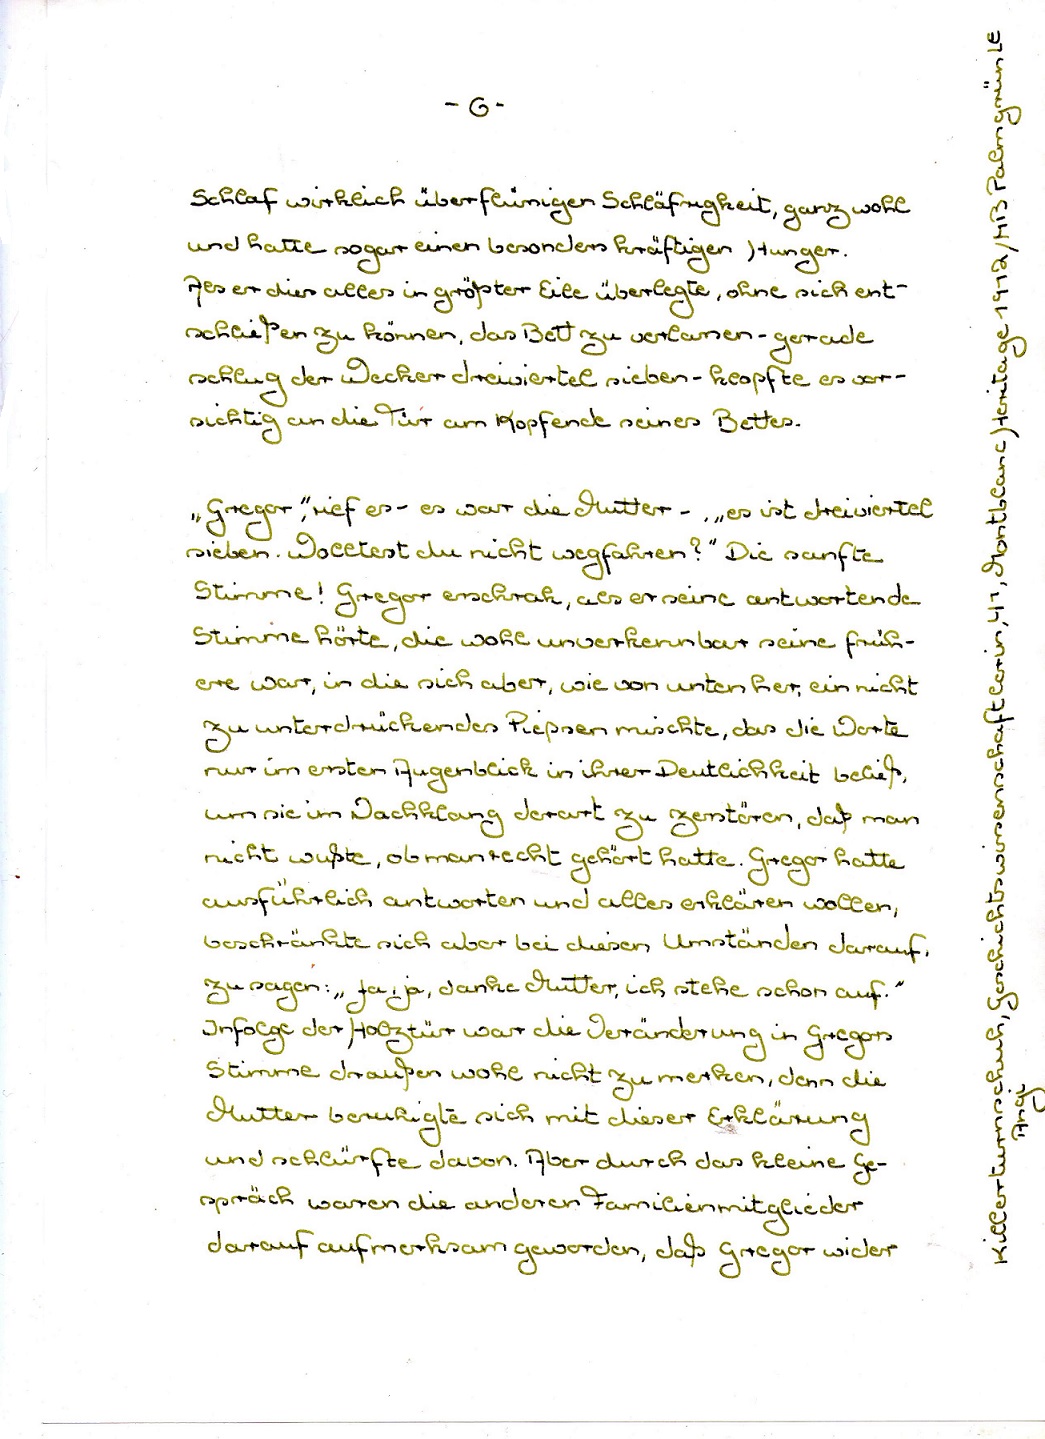 - 6 -
Schlaf wirklich überflüssigen Schläfrigkeit, ganz wohl
und hatte sogar einen besonders kräftigen Hunger.
Als er dies alles in größter Eile überlegte, ohne sich ent-
schließen zu können, das Bett zu verlassen - gerade
schlug der Wecker dreiviertel sieben - klopfte es vor-
sichtig an die Tür am Kopfende seines Bettes.
„Gregor", rief es - es war die Mutter -, „es ist dreiviertel
sieben. Wolltest du nicht wegfahren?" Die sanfte
Stimme! Gregor erschrak, als er seine antwortende
Stimme hörte, die wohl unverkennbar seine früh-
ere war, in die sich aber, wie von unten her, ein nicht
zu unterdrückendes Piepsen mischte, das die Worte
nur im ersten Augenblick in ihrer Deutlichkeit beließ,
um sie im Nachklang derart zu zerstören, daß man
nicht wußte, ob man recht gehört hatte. Gregor hatte
ausführlich antworten und alles erklären wollen,
beschränkte sich aber bei diesen Umständen darauf,
zu sagen: „Ja, ja, danke Mutter, ich stehe schon auf."
Infolge der Holztür war die Veränderung in Gregors
Stimme draußen wohl nicht zu merken, denn die
Mutter beruhigte sich mit dieser Erklärung
und schlürfte davon. Aber durch das kleine Ge-
spräch waren die anderen Familienmitglieder
darauf aufmerksam geworden, daß Gregor wider
Killerturnschuh, Geschichtswissenschaftlerin, 41, Montblanc Heritage 1912/M13 Palmgrün LE
Angi